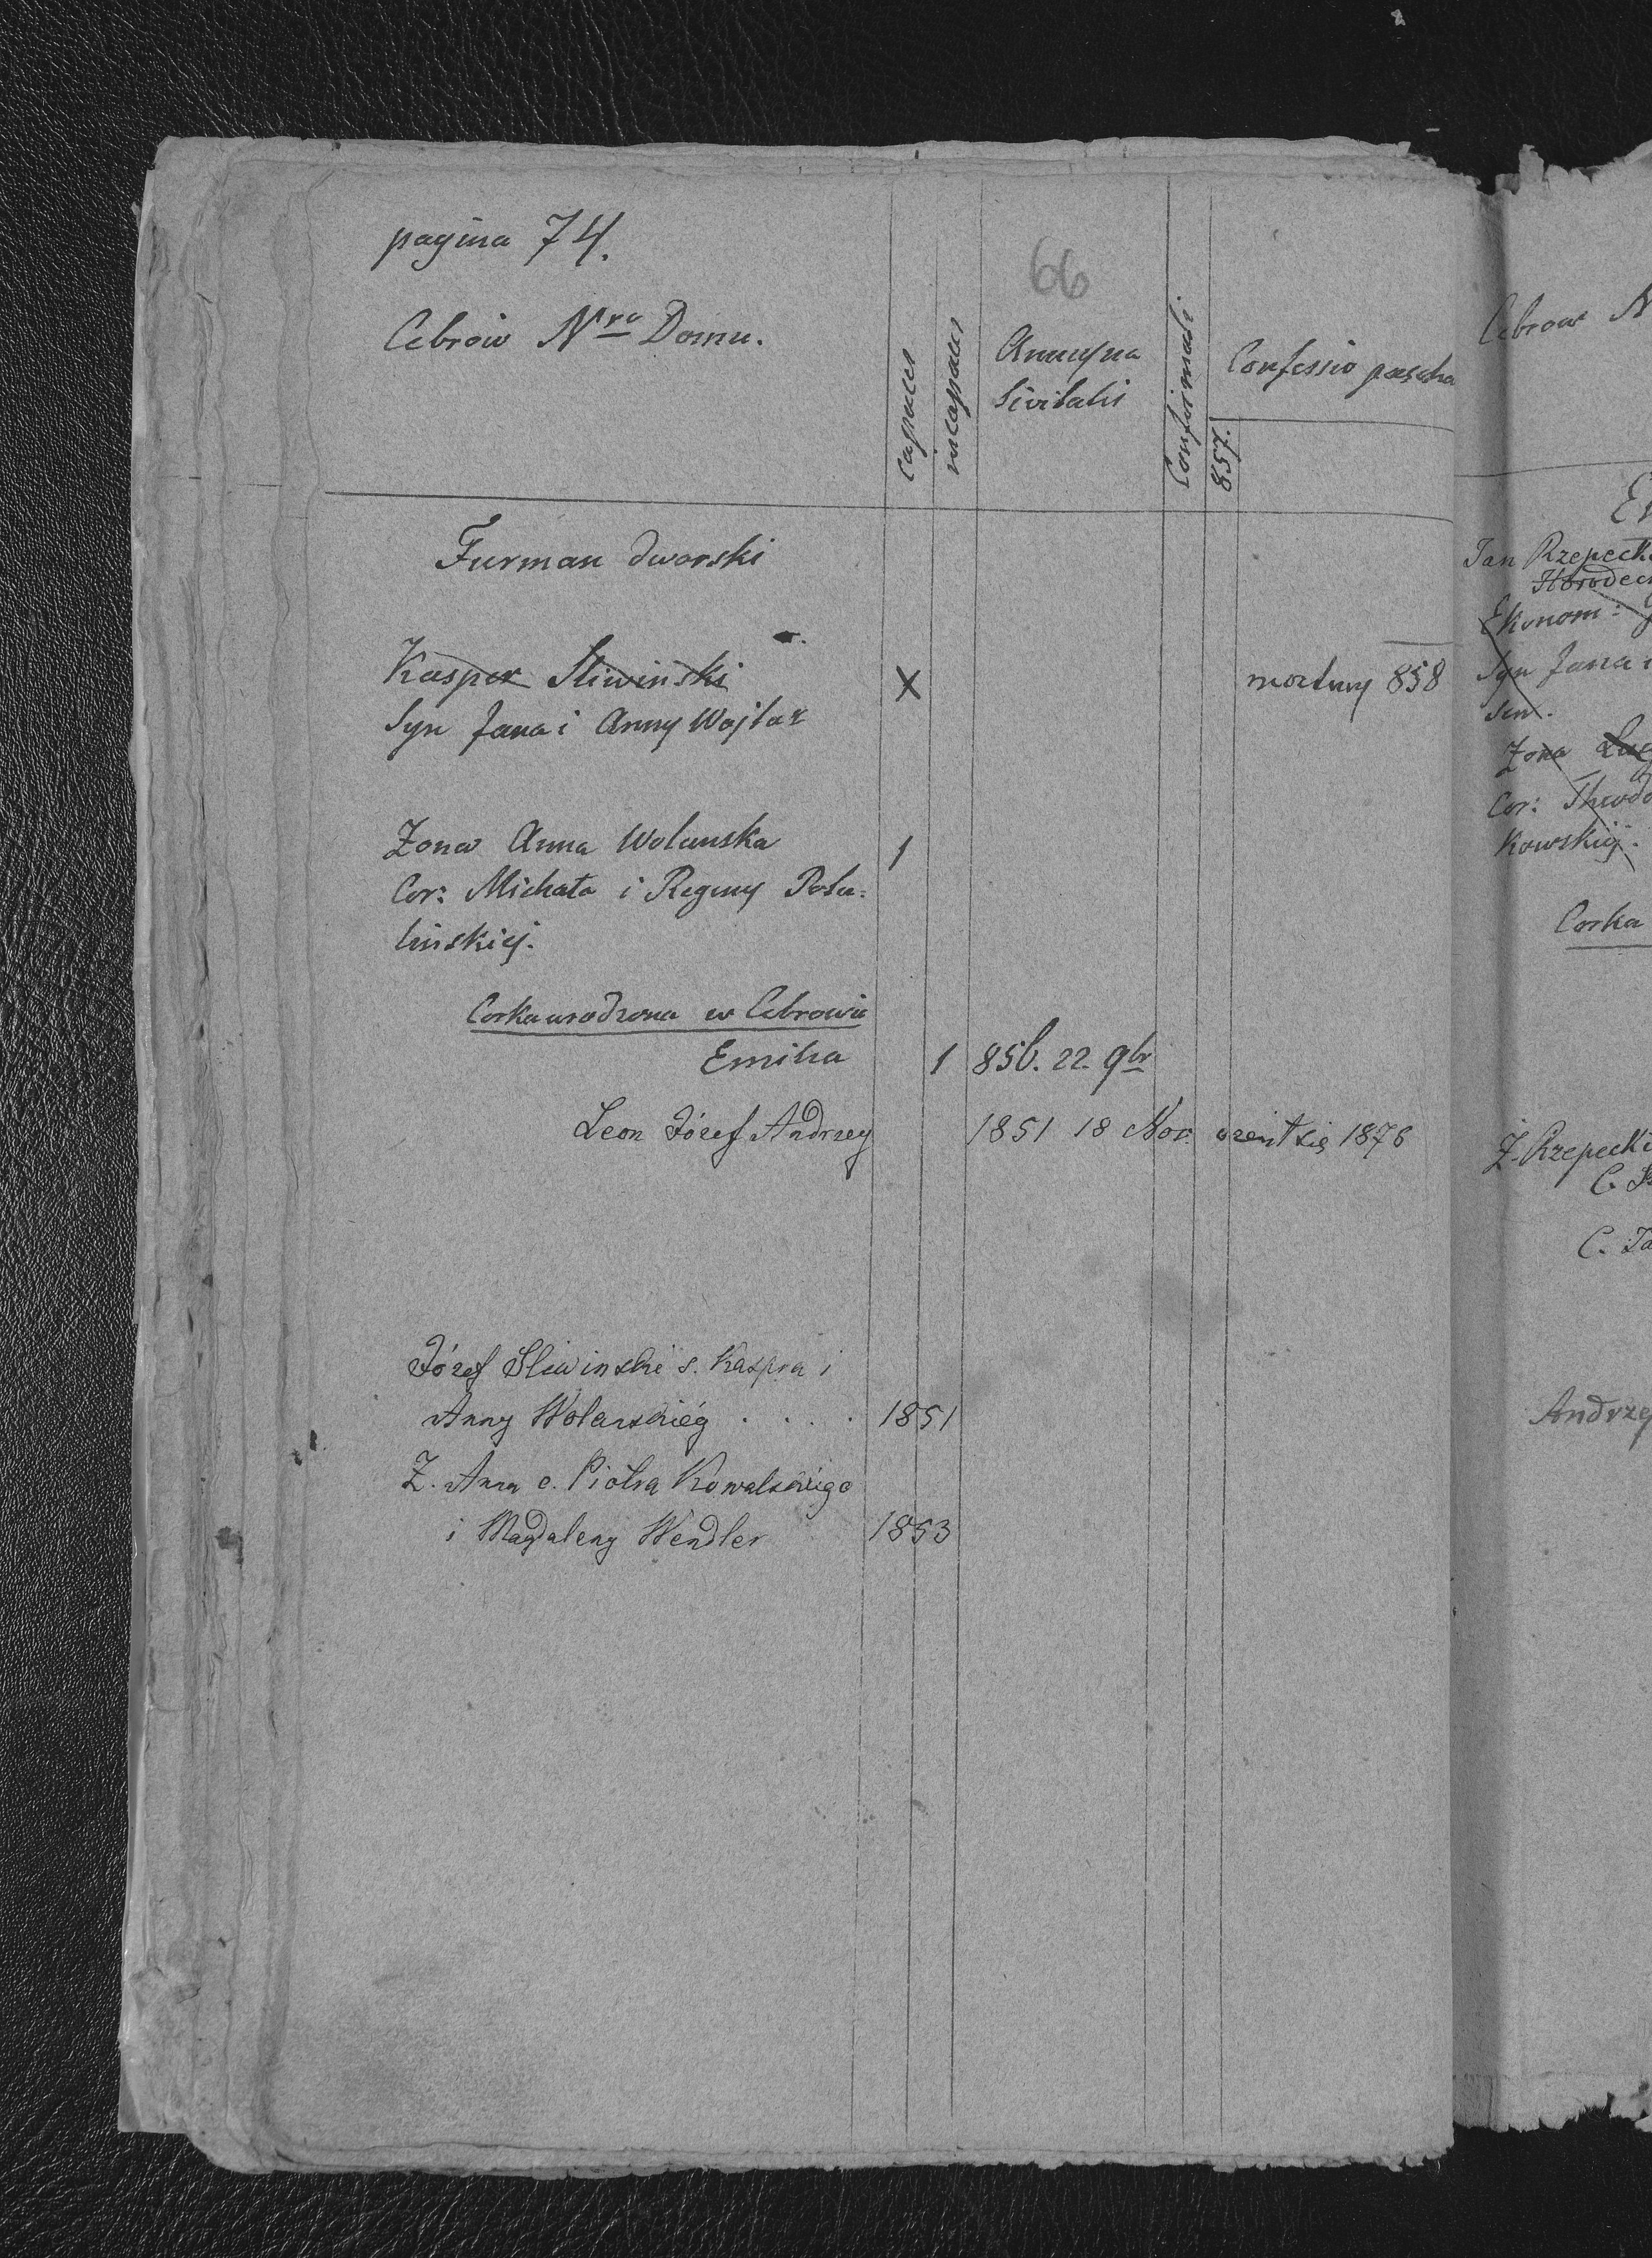 pagina 74.
66
Cebrow Nro Domu.
capaces
incapaces
Annus na
tivitatis
Confirmati
857.
Confessio pascha
Furman dworski
Kasper Sliwinski
Syn Jana i Anny Wojtaz
X
mortuus 858
Zona Anna Wolanska
1
Cor: Michała i Reginy Polu-
linskiej.
Corka urodzona w Cebrowie
Emilia 1 856. 22. 9br
Leon Józef Andrzey 1851 18 Nov. ożenił się 1876
Józef Sliwinski s. Kaspra i
Anny Wolanskiég . . . . 1851
Ż. Anna c. Piotra Kowalskiego
i Magdaleny Wendler 1853
Cebrow N
Jan Rzepecki
Horodec
Ekonom:
Syn Jana i
Zona
Cor: Theodo
kowskiej.
Corka
Ż. Rzepecki
C.
C. Ja
Andrzej